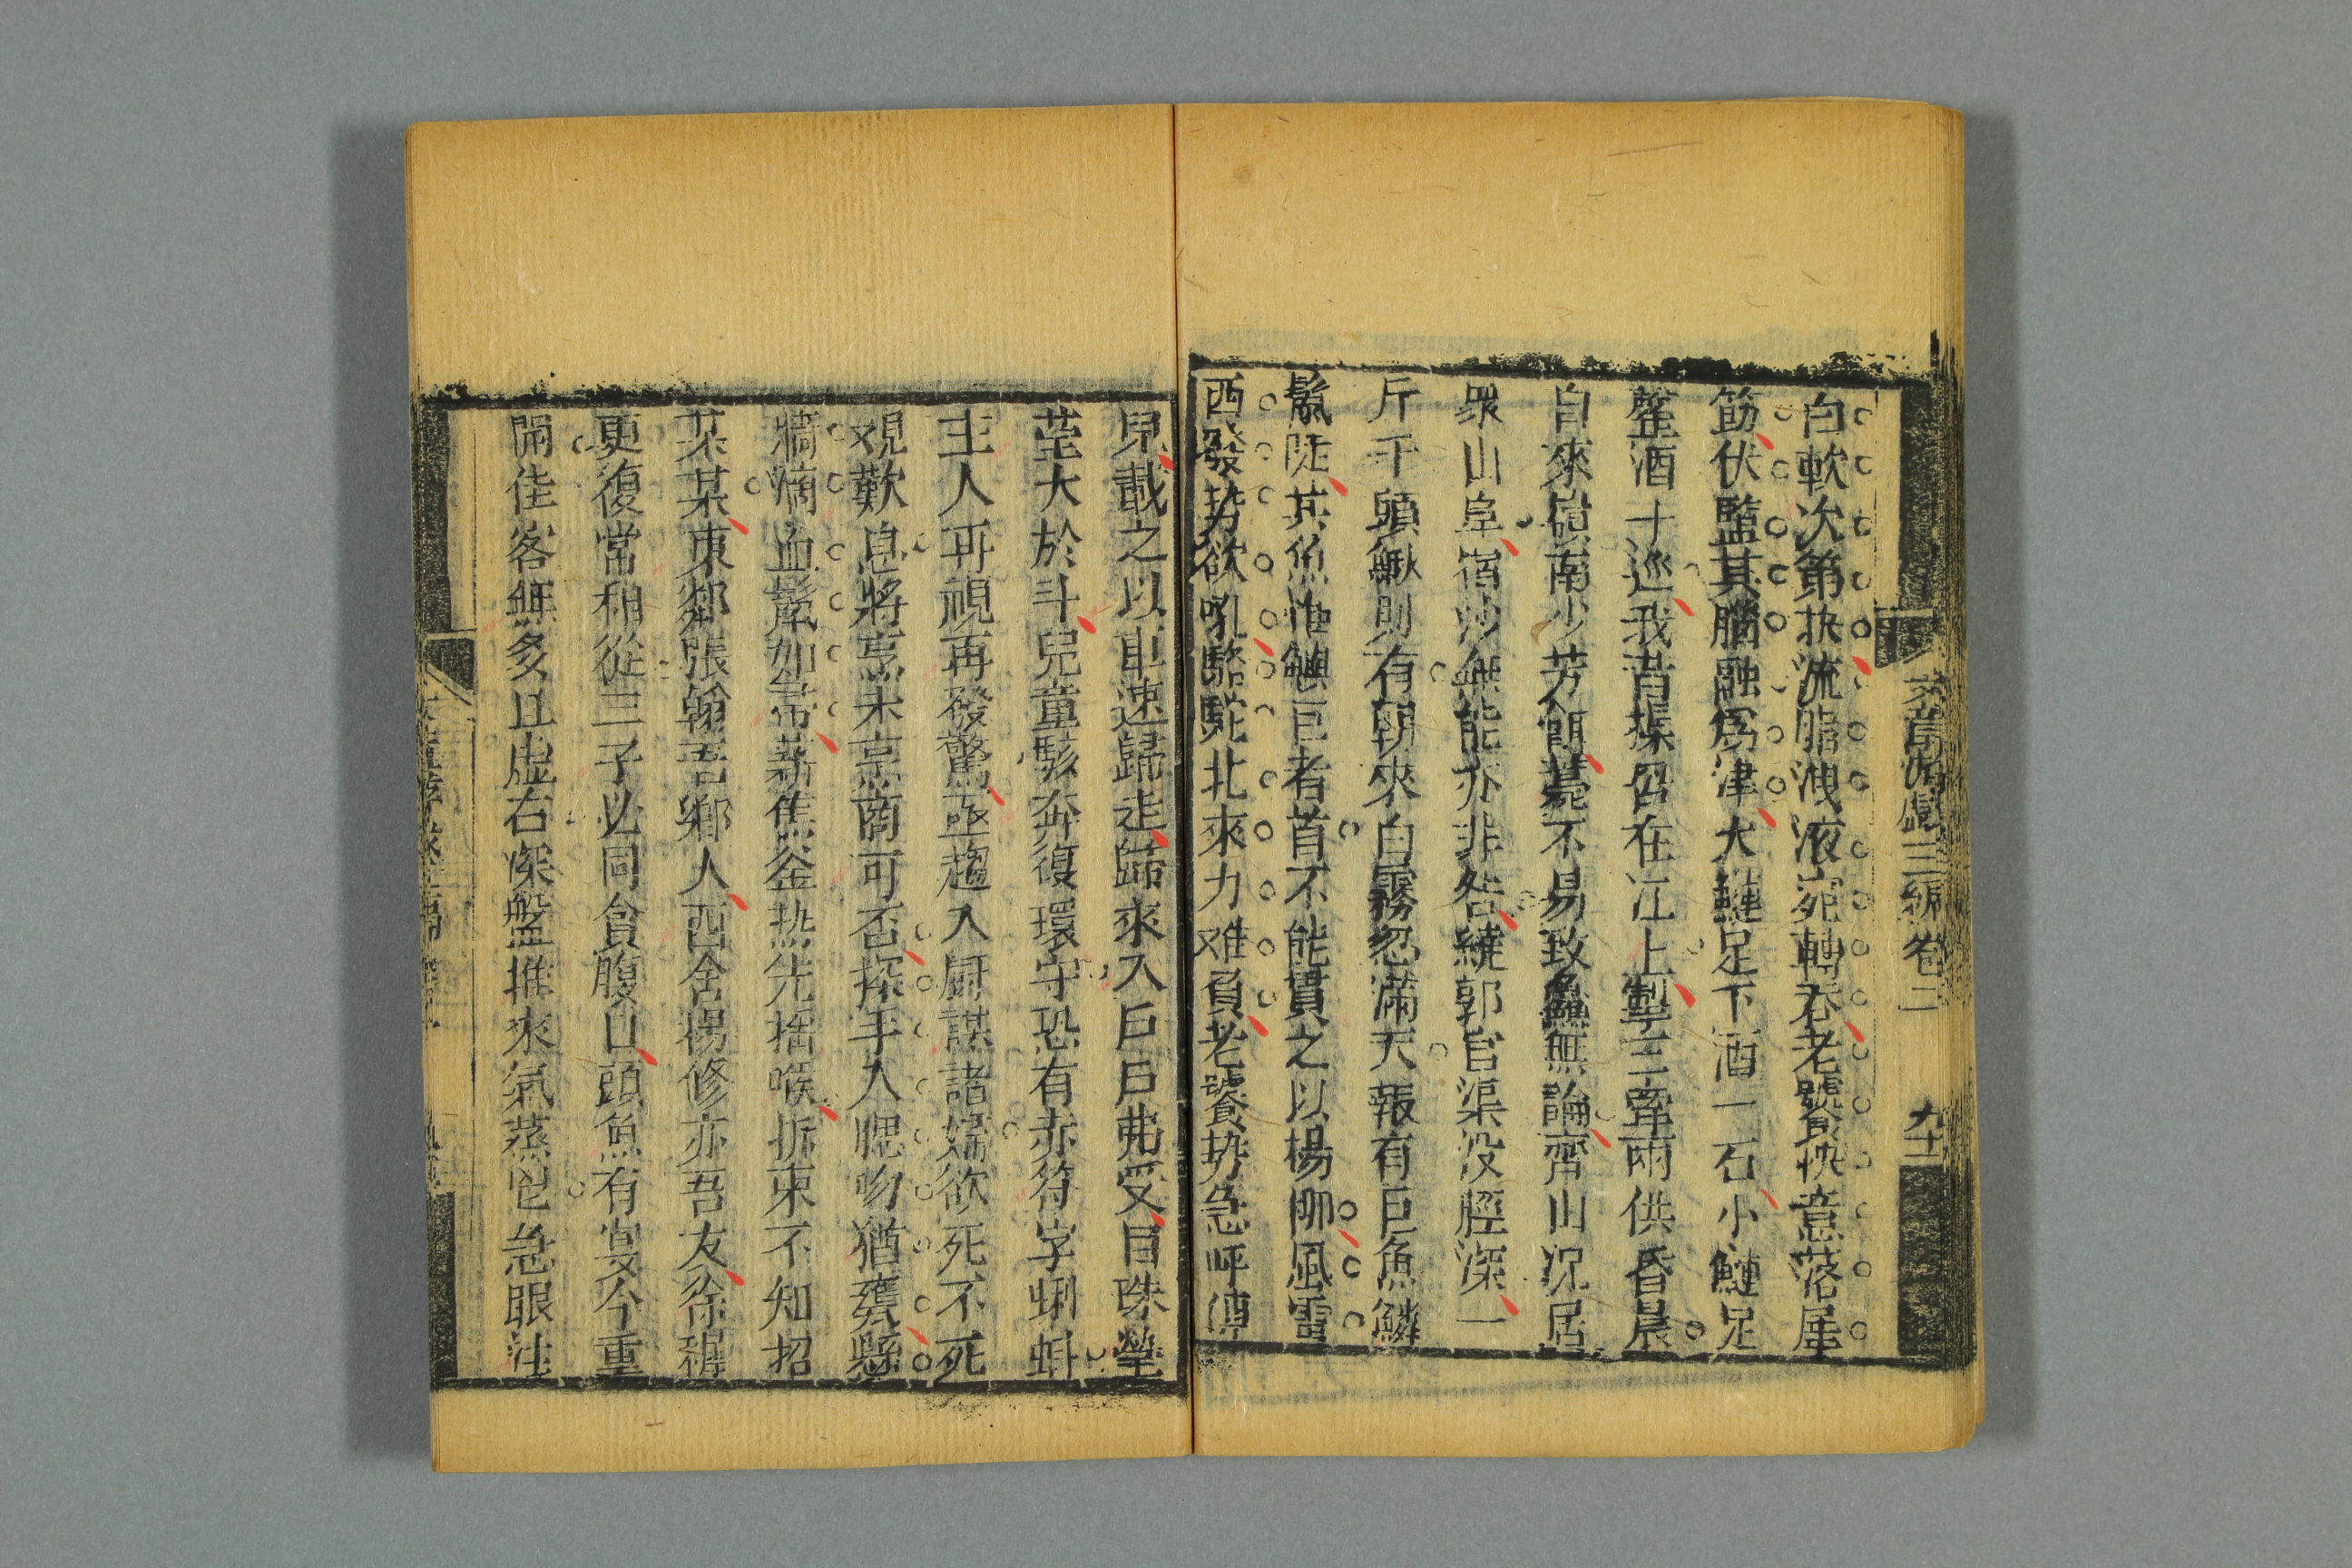 文章游戲三編卷二
九十一
白軟次第抉流脂洩液宛轉吞老饕快意落犀
筯伏盬其腦融爲津大鰱足下酒一石小鰱足
罄酒十巡我昔操舟在江上掣三牽兩供昏晨
自來嶺南少芳餌薨不易致鱻無論齊山況居
衆山阜宿沙無能亦非咎繞郭官渠没脛深一
斤千頭鰍則有朝來白霧忽滿天報有巨魚鱗
鬣陡其魚惟鱮巨者首不能貫之以楊柳風雷
西發势欲吼駱駝北來力难負老饕势急呼傳
兒載之以車速歸走歸來入戶戶弗受目珠瑩
瑩大於斗兒童駭奔復環守恐有赤符字蝌蚪
主人再視再發驚亟趨入厨謀諸婦欲死不死
覌歎息將烹未烹商可否探手入腮吻猶甕縣
牆滴血鬣如帚薪焦釜热先捂喉折柬不知招
某某東鄰張翰吾鄉人西舍楊修亦吾友徐穉
更復常相從三子必同貪腹口頭魚有宴今重
開佳客無多且虚右深盤推來氣蒸包急眼注